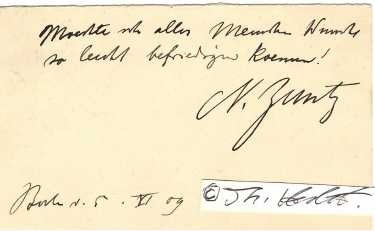 Moechte ich aller Menschen Wunsch
so leicht befriedigen koennen!
N. Zuntz
Berlin d. 5. XI 09
© Th.